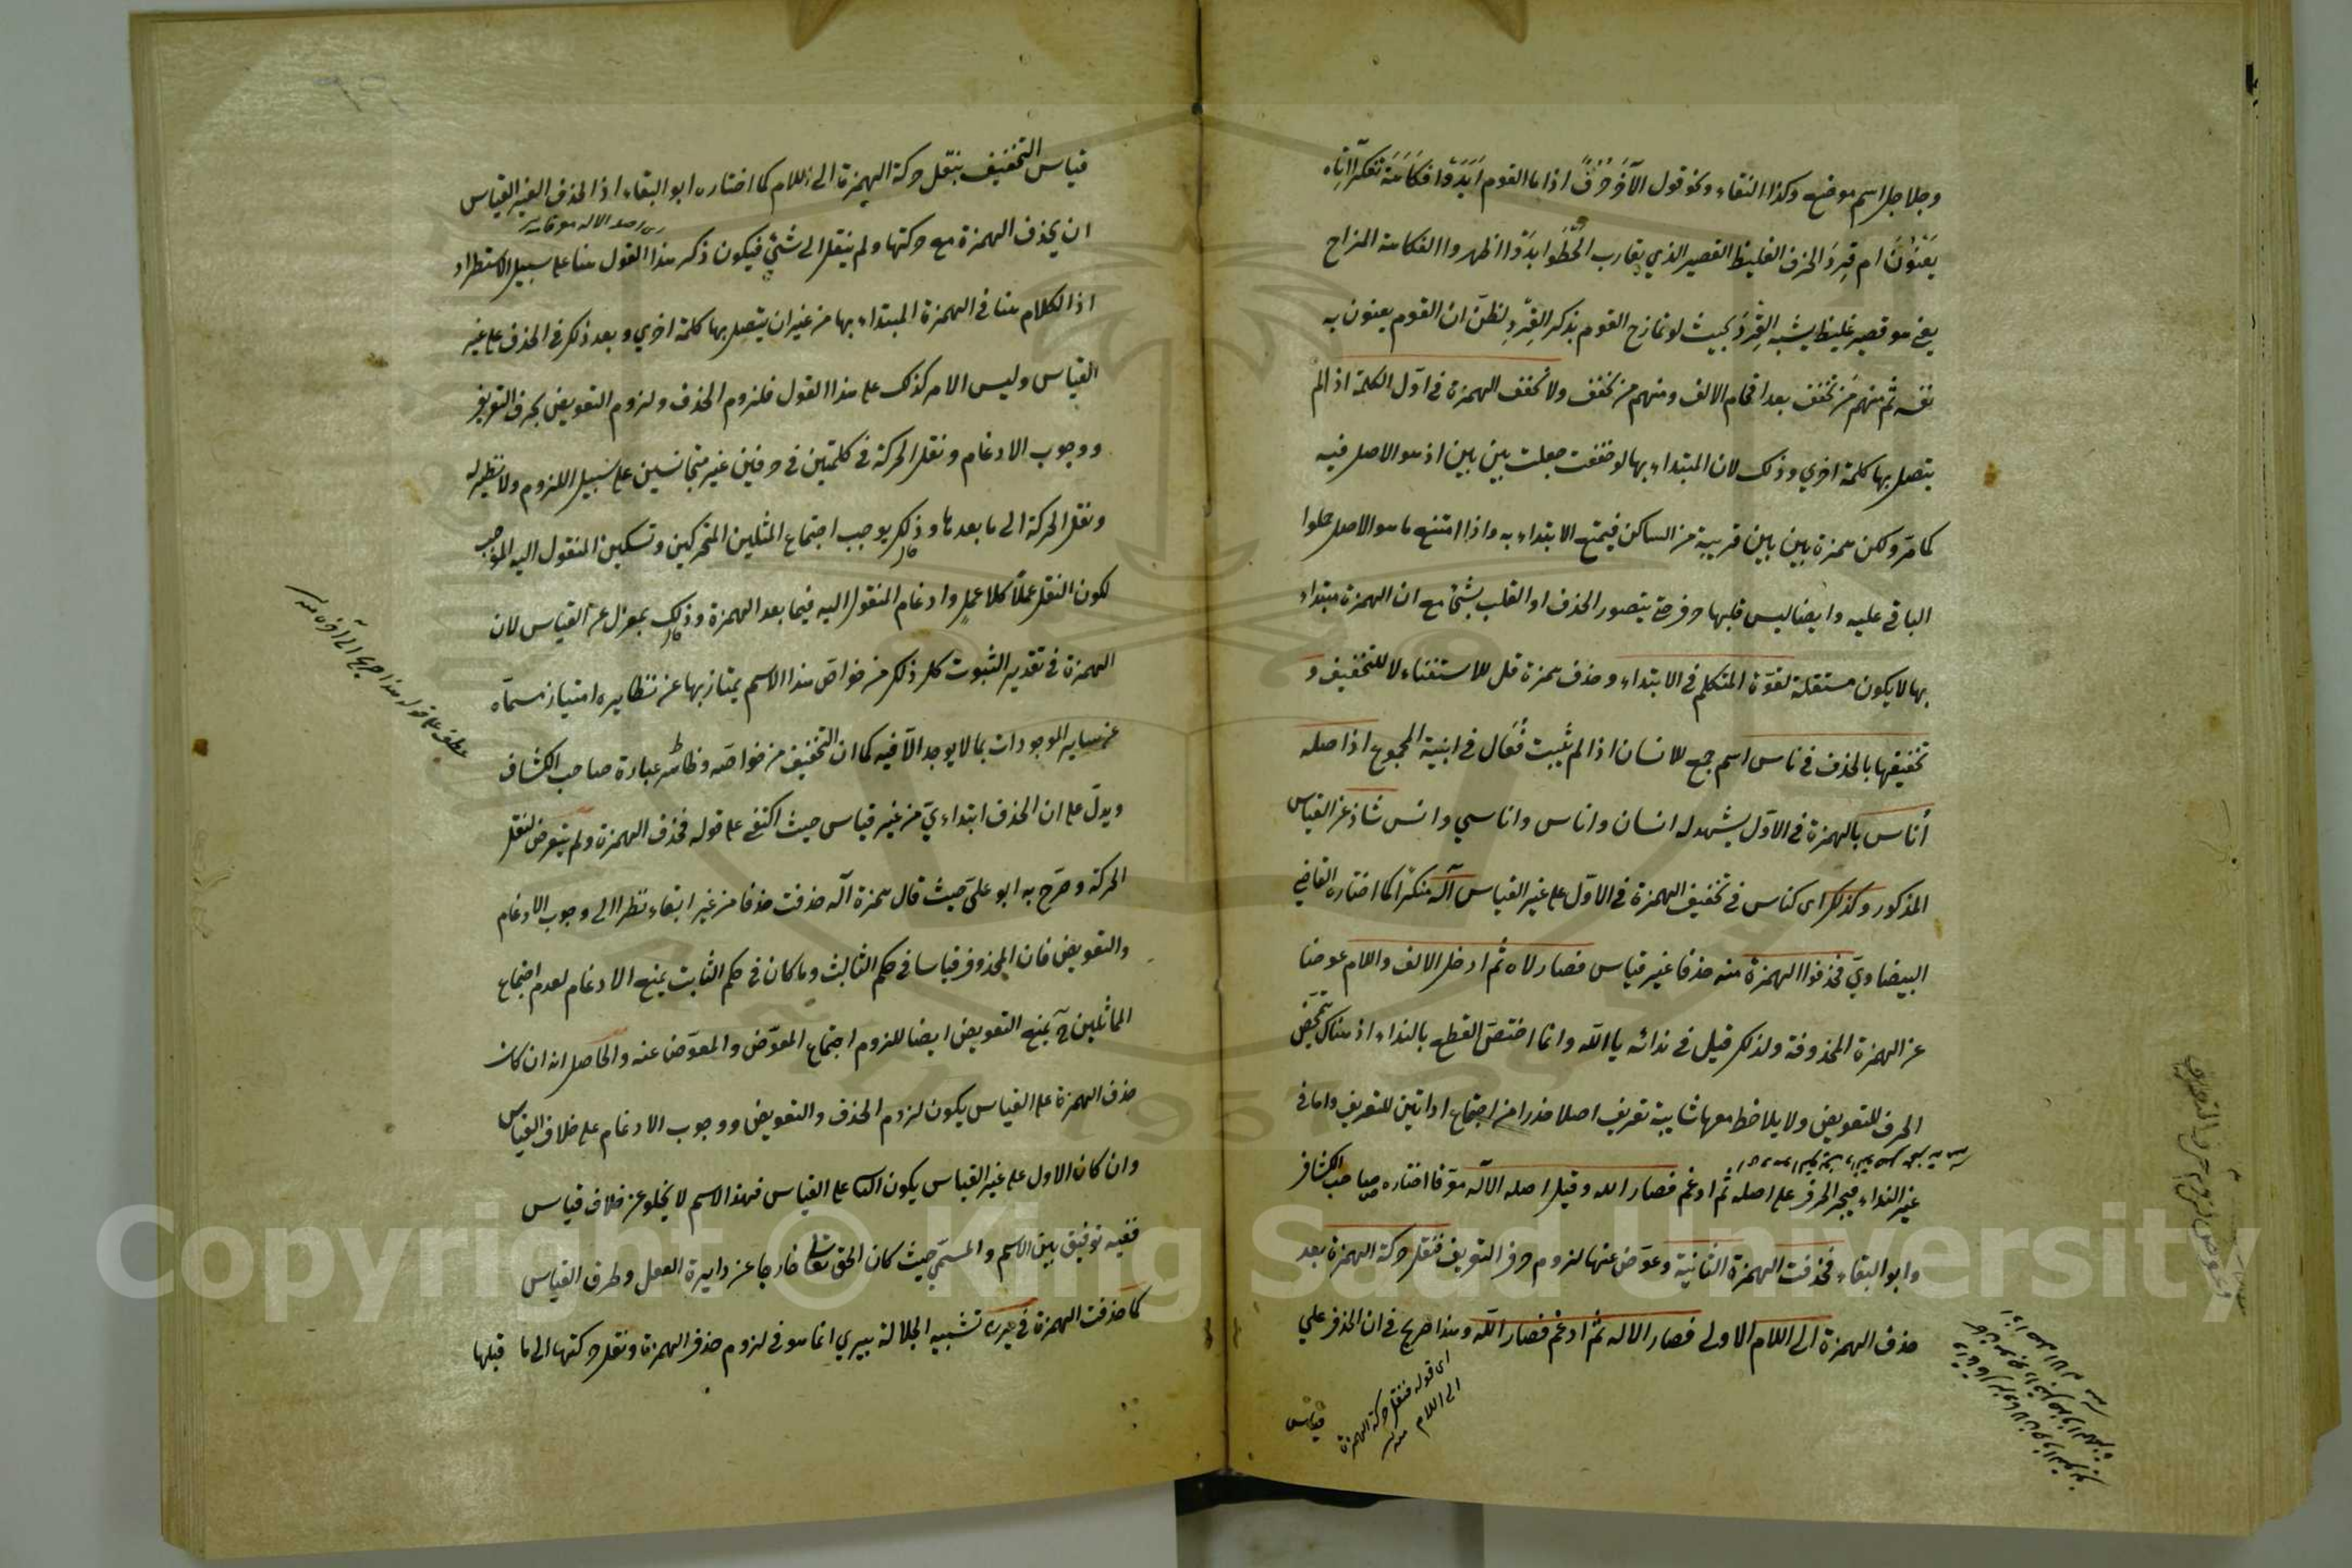 وجلاجل اسم موضع وكذا النقاء ونحو قول الآخر حُزُقٌّ اذا ما القوم اَبْدَوْا فُكَاهَةً تفكّر آاياه
يَعْنُوْنَ ام قِردَ الحزق الغليظ القصير الذي يقارب الخُطَو ابدَوْا اظهروا الفكاهة المزاح
يعني هو قصير غليظ يشبه القِردَ بحيث لو تمازح القوم بذكر القِردِ لظنّ ان القوم يعنون به
نفسه ثم منهم مَن تخفف بعد اقحام الالف ومنهم من تخفف ولا تخفف الهمزة في اوّل الكلمة اذا لم
يتصل بها كلمة اخري وذلك لان المبتداء بها لو خففت جعلت بين بين اذ هو الاصل فيه
كما مرّ ولكن همزة بين بين قريبة من الساكن فيمتنع الابتداء به واذا امتنع ما هو الاصل حملوا
الباقي عليه وايضا ليس قبلها حرف حتي يتصور الحذف او القلب بشئ مع ان الهمزة مبتداء
بها لا يكون مستقلة لقوّة المتكلم في الابتداء وحذف همزة قل للاستغناء لا للتخفيف و
تخفيفها بالحذف في ناس اسم جمع للانسان اذ لم يثبت فُعَال في ابنية المجموع اذ اصله
أناس بالهمزة في الاوّل يشهد له انسان واناس واناسي وانس شاذ عن القياس
المذكور وكذلك اى كناس في تخفيف الهمزة في الاوّل على غير القياس آله منكّرا كما اختاره القاضي
البيضاويّ فحذفوا الهمزة منه حذفا غير قياس فصار لاه ثم ادخل الالف واللام عوضا
عن الهمزة المحذوفة ولذلك قيل في ندائه يا الله وانما اختصّ القطع بالنداء اذ هناك يتمحّض
الحرف للتعويض ولا يلاحظ معها شايبة تعريف اصلا حذرا من اجتماع اداتين للتعريف واما في
غير النداء فيجر الحرف على اصله ثم ادغم فصار الله وقيل اصله الآله معرّفا اختاره صاحب الكشاف
وابو البقاء فحذفت الهمزة الثانية وعوّض عنها لزوم حرف التعريف فنقل حركة الهمزة بعد
حذف الهمزة الى اللام الاولى فصار الاله ثم ادغم فصار الله وهذا صريح في ان الحذف علي
اى قوله فنقل حركة الهمزة
الى اللام منه
قياس
قياس التخفيف بنقل حركة الهمزة الى اللام كما اختاره ابو البقاء اذ الحذف الغير القياس
ان يحذف الهمزة مع حركتها ولم ينقل الى شئ فيكون ذكر هذا القول هنا على سبيل الاستطراد
اذ الكلام هنا في الهمزة المبتداء بها من غير ان يتصل بها كلمة اخري وبعد ذلك في الحذف على غير
القياس وليس الامر كذلك على هذا القول فلزوم الحذف ولزوم التعويض بحرف التعريف
ووجوب الادغام ونقل الحركة في كلمتين في حرفين غير متجانسين على سبيل اللزوم ولا نظير له
ونقل الحركة الى ما بعدها وذلك يوجب اجتماع المثلين المتحركين وتسكين المنقول اليه الموجب
لكون النقل عملاً كلا عملٍ وادغام المنقول اليه فيما بعد الهمزة وذلك بمعزل عن القياس لان
الهمزة في تقدير الثبوت كل ذلك من خواصّ هذا الاسم يمتاز بها عن نظايره امتياز مسمّاه
عن ساير الموجودات بما لا يوجد الاّ فيه كما ان التخفيف من خواصّه وظاهر عبارة صاحب الكشاف
ويدلّ على ان الحذف ابتداءيّ من غير قياس حيث اكتفى على قوله فحذف الهمزة ولم يتعرض لنقل
الحركة وصرّح به ابو عليّ حيث قال همزة آله حذفت حذفا من غير ابقاء نظرا الى وجوب الادغام
والتعويض فان المحذوف قياسا في حكم الثابت وما كان في حكم الثابت يمنع الادغام لعدم اجتماع
المماثلين ح يمنع التعويض ايضا للزوم اجتماع المعوّض والمعوّض عنه والحاصل انه ان كان
حذف الهمزة على القياس يكون لزوم الحذف والتعويض ووجوب الادغام على خلاف القياس
وان كان الاول على غير القياس يكون على القياس فهذا الاسم لا يخلو عن خلاف قياس
ففيه توفيق بين الاسم والمسمّى حيث كان الحق تعالى خارجا عن دايرة العقل وطرق القياس
كما حذفت الهمزة في يرى تشبيه الجلالة بيري انما هو في لزوم حذف الهمزة ونقل حركتها الى ما قبلها
Copyright © King Saud University
1957